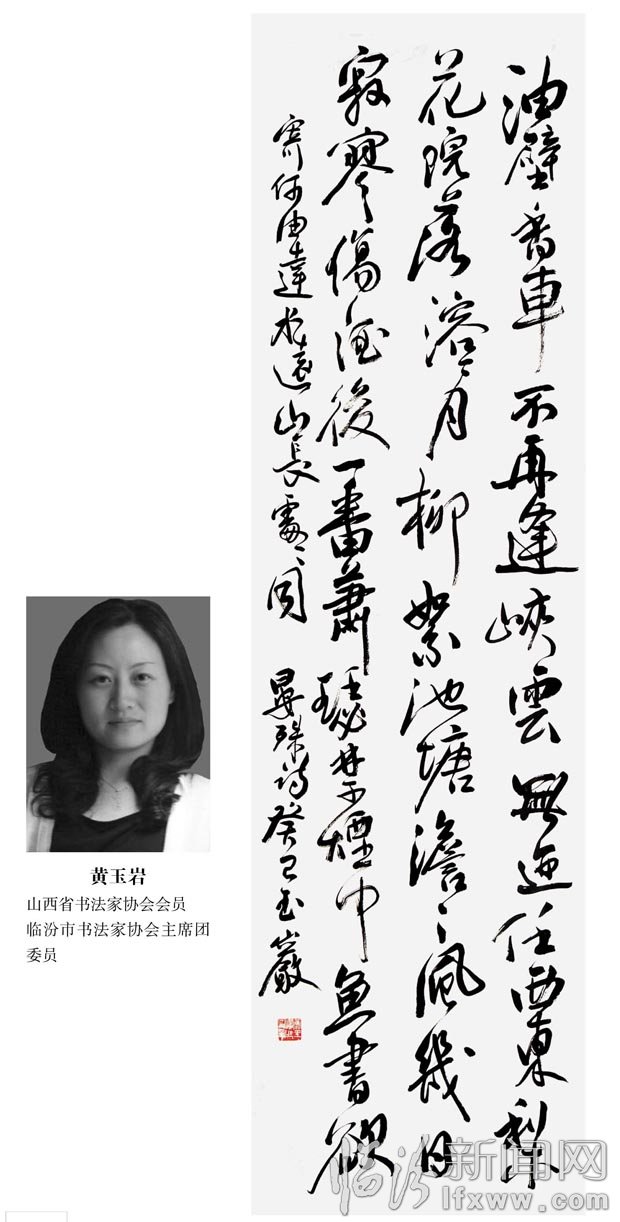 油壁香車不再逢峽雲無迹任西東梨
花院落溶〻月柳絮池塘澹〻風幾日
寂寥傷酒後一番蕭瑟禁煙中魚書欲
寄何由達水遠山長處〻同 晏殊詩癸巳玉巖
黄玉岩
山西省书法家协会会员
临汾市书法家协会主席团
委员
临汾新闻网
lfxww.com